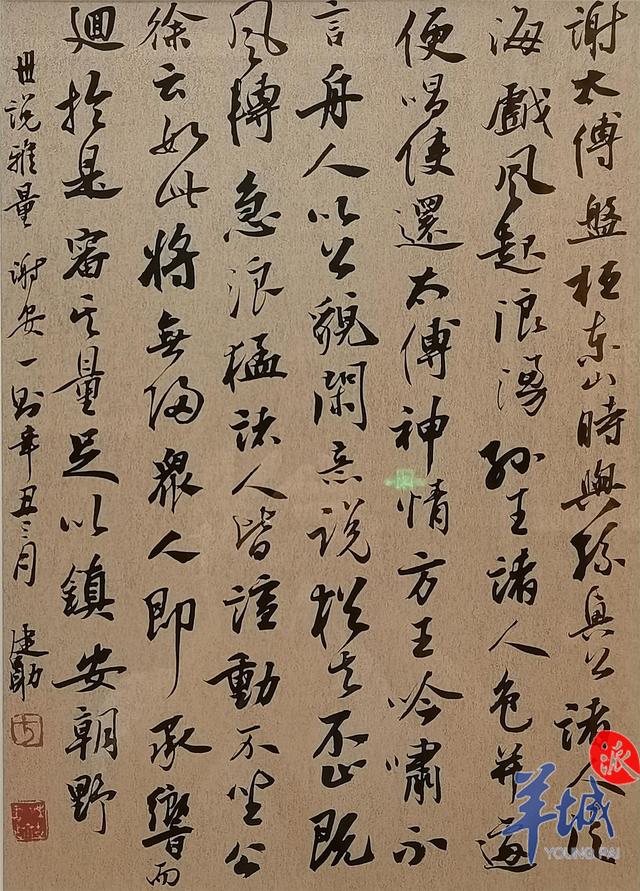 謝太傅盤桓東山時與孫興公諸人
海戲風起浪湧孫王諸人色并遽
便唱使還太傅神情方王吟嘯不
言舟人以公貌閑意説猶去不止既
風轉急浪猛諸人皆諠動不坐公
徐云如此將無歸眾人即承響而
迴於是審其量足以鎮安朝野
世説雅量 謝安一則 辛丑三月 建勛
羊城派
YOUNG PAI